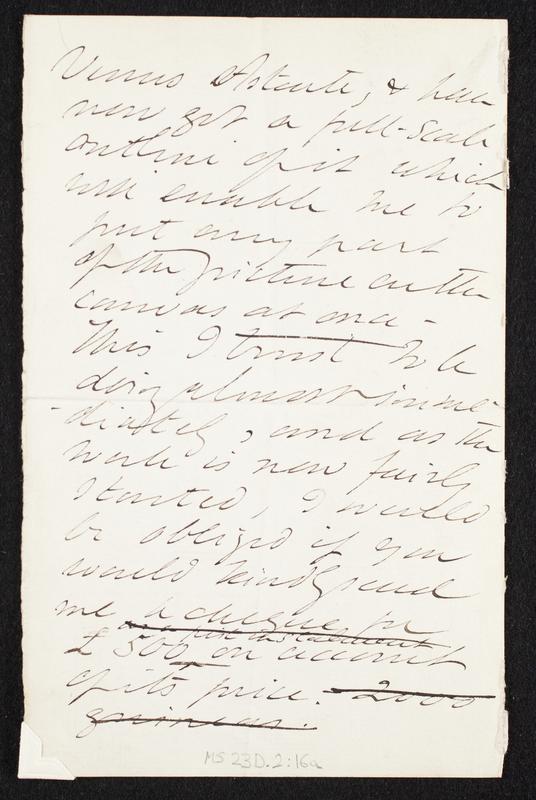 Venus Astarte, & have
now got a full-scale
outline of it which
will enable me to
put any part
of the picture on the
canvas at once –
This I trust to be
doing almost imme
-diately, and as the
work is now fairly
started, I would
be obliged if you
would kindly send
me a cheque for
as a first instalment
£500 on account
of its price. – 2000
guineas.
MS 23D.2:16a